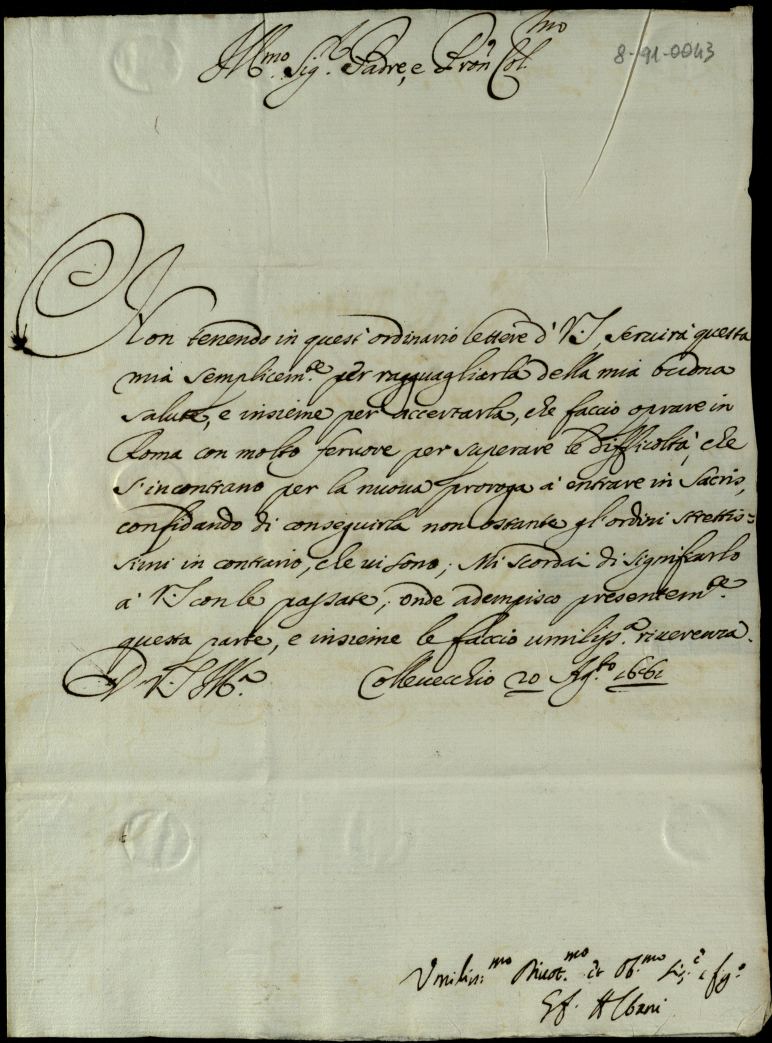 Ill.mo Sig.r Padre, e Pron Col.mo
8-91-0043
Non tenendo in quest'ordinario lettere d'V.S, seruirà questa
mia semplicem.te per ragguagliarla della mia buona
salute, e insieme per accertarla, che faccio oprare in
Roma con molto feruore per superare le difficoltà, che
s'incontrano per la nuoua proroga à entrare in Sacris,
confidando di conseguirla non ostante gl'ordini strettis=
simi in contrario, che ui sono; Mi scordai di significarlo
à V.S con le passate; onde adempisco presentem.te
questa parte, e insieme le faccio umiliss.a riuerenza.
D V.S Ill.a Colleuecchio 20 Ag.to 1661
Umiliss.mo Diuot.mo et Ob.mo Se.e e fig.o
Albani